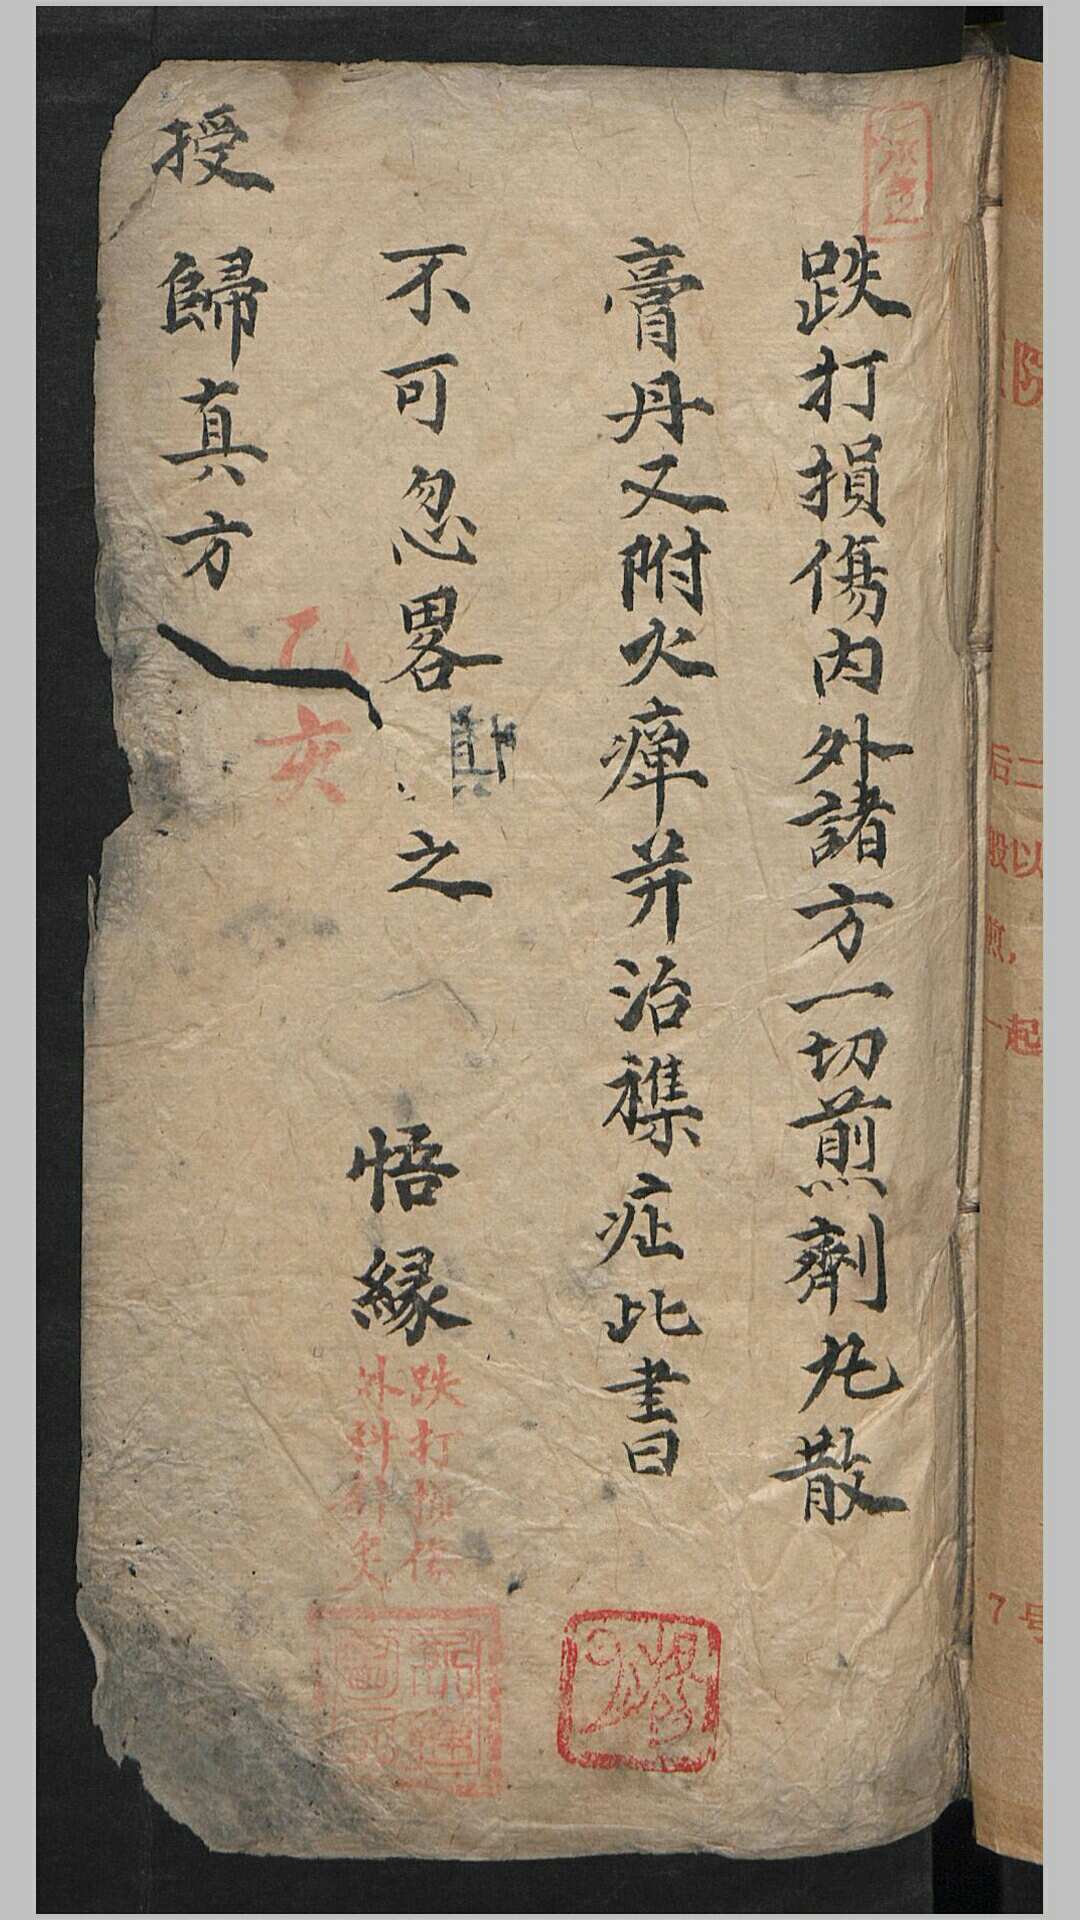 跌打損傷内外諸方一切煎劑丸散
膏丹又附火瘴并治襍症此書
不可忽畧之
悟緣
授歸真方
乙亥
跌打損傷
外科
院
后二
般以
煎,
一起
7号